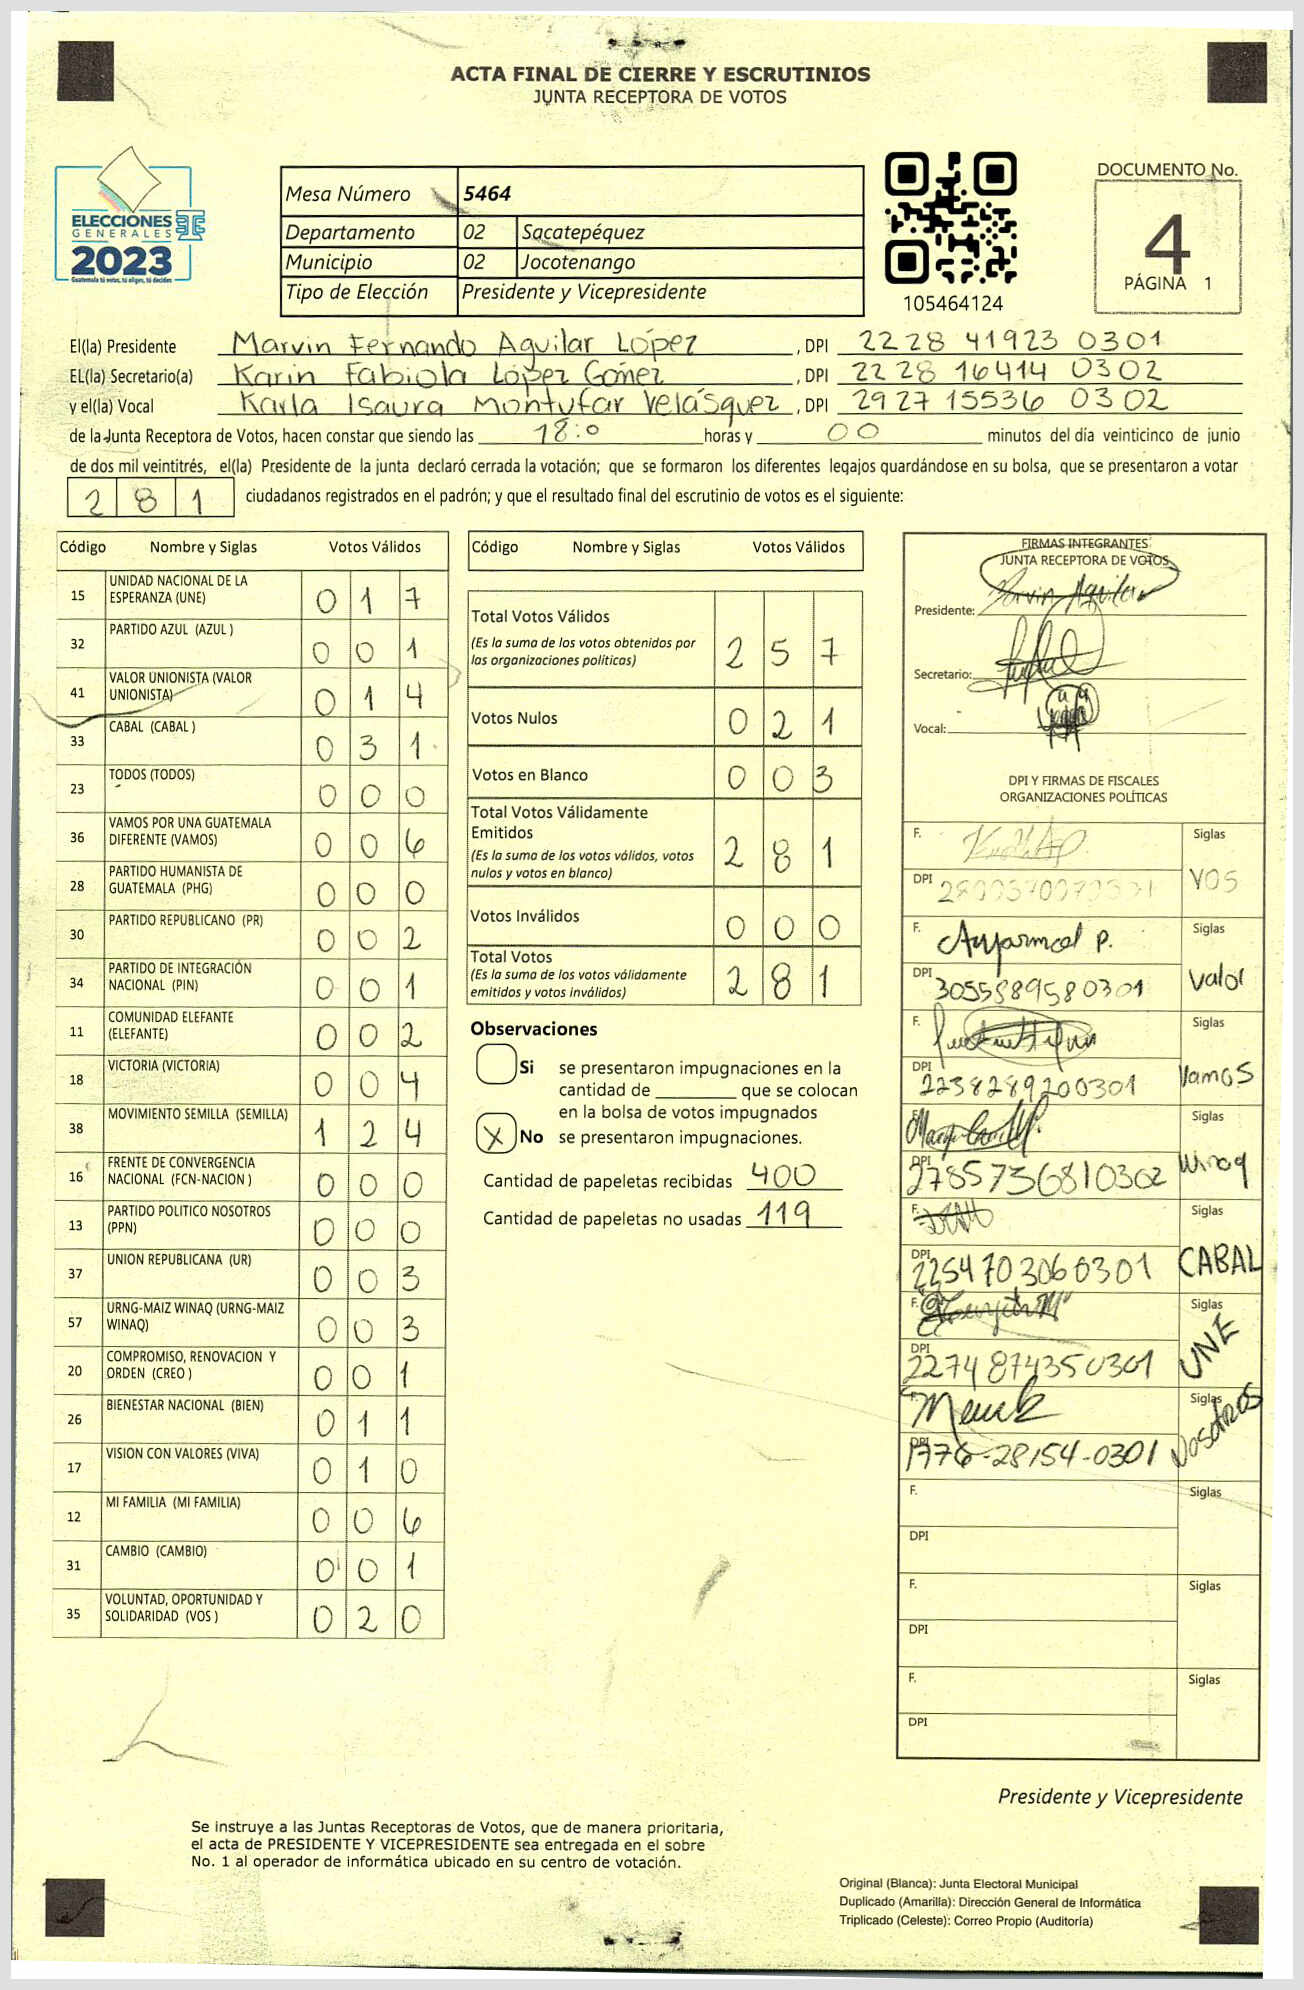 ACTA FINAL DE CIERRE Y ESCRUTINIOS
JUNTA RECEPTORA DE VOTOS
ELECCIONES
GENERALES
2023
Guatemala tú votas, tú eliges, tú decides
Mesa Número 5464
Departamento 02 Sacatepéquez
Municipio 02 Jocotenango
Tipo de Elección Presidente y Vicepresidente
105464124
DOCUMENTO No.
4
PÁGINA 1
El(la) Presidente Marvin Fernando Aguilar López , DPI 2228 41923 0301
EL(la) Secretario(a) Karin Fabiola López Gómez , DPI 2228 16414 0302
y el(la) Vocal Karla Isaura Montufar Velásquez , DPI 2927 15536 0302
de la Junta Receptora de Votos, hacen constar que siendo las 18:0 horas y 00 minutos del día veinticinco de junio
de dos mil veintitrés, el(la) Presidente de la junta declaró cerrada la votación; que se formaron los diferentes legajos guardándose en su bolsa, que se presentaron a votar
281 ciudadanos registrados en el padrón; y que el resultado final del escrutinio de votos es el siguiente:
Código Nombre y Siglas Votos Válidos
15 UNIDAD NACIONAL DE LA ESPERANZA (UNE) 0 1 7
32 PARTIDO AZUL (AZUL ) 0 0 1
41 VALOR UNIONISTA (VALOR UNIONISTA) 0 1 4
33 CABAL (CABAL ) 0 3 1
23 TODOS (TODOS) 0 0 0
36 VAMOS POR UNA GUATEMALA DIFERENTE (VAMOS) 0 0 6
28 PARTIDO HUMANISTA DE GUATEMALA (PHG) 0 0 0
30 PARTIDO REPUBLICANO (PR) 0 0 2
34 PARTIDO DE INTEGRACIÓN NACIONAL (PIN) 0 0 1
11 COMUNIDAD ELEFANTE (ELEFANTE) 0 0 2
18 VICTORIA (VICTORIA) 0 0 4
38 MOVIMIENTO SEMILLA (SEMILLA) 1 2 4
16 FRENTE DE CONVERGENCIA NACIONAL (FCN-NACION ) 0 0 0
13 PARTIDO POLITICO NOSOTROS (PPN) 0 0 0
37 UNION REPUBLICANA (UR) 0 0 3
57 URNG-MAIZ WINAQ (URNG-MAIZ WINAQ) 0 0 3
20 COMPROMISO, RENOVACION Y ORDEN (CREO ) 0 0 1
26 BIENESTAR NACIONAL (BIEN) 0 1 1
17 VISION CON VALORES (VIVA) 0 1 0
12 MI FAMILIA (MI FAMILIA) 0 0 6
31 CAMBIO (CAMBIO) 0 0 1
35 VOLUNTAD, OPORTUNIDAD Y SOLIDARIDAD (VOS ) 0 2 0
Código Nombre y Siglas Votos Válidos
Total Votos Válidos 2 5 7
(Es la suma de los votos obtenidos por
las organizaciones políticas)
Votos Nulos 0 2 1
Votos en Blanco 0 0 3
Total Votos Válidamente
Emitidos 2 8 1
(Es la suma de los votos válidos, votos
nulos y votos en blanco)
Votos Inválidos 0 0 0
Total Votos 2 8 1
(Es la suma de los votos válidamente
emitidos y votos inválidos)
Observaciones
Si se presentaron impugnaciones en la
cantidad de ________ que se colocan
en la bolsa de votos impugnados
X No se presentaron impugnaciones.
Cantidad de papeletas recibidas 400
Cantidad de papeletas no usadas 119
FIRMAS INTEGRANTES
JUNTA RECEPTORA DE VOTOS
Presidente: Marvin Aguilar
Secretario:
Vocal:
DPI Y FIRMAS DE FISCALES
ORGANIZACIONES POLÍTICAS
F. Siglas
DPI VOS
F. Siglas
DPI 3055889580301 Valor
F. Siglas
DPI 2238289200301 Vamos
F. Siglas
DPI 2785736810302 Winaq
F. Siglas
DPI 2254703060301 CABAL
F. Siglas
DPI 2274874350301 UNE
F. Siglas
DPI 1776-28154-0301 Nosotros
F. Siglas
DPI
F. Siglas
DPI
F. Siglas
DPI
Presidente y Vicepresidente
Se instruye a las Juntas Receptoras de Votos, que de manera prioritaria,
el acta de PRESIDENTE Y VICEPRESIDENTE sea entregada en el sobre
No. 1 al operador de informática ubicado en su centro de votación.
Original (Blanca): Junta Electoral Municipal
Duplicado (Amarilla): Dirección General de Informática
Triplicado (Celeste): Correo Propio (Auditoría)